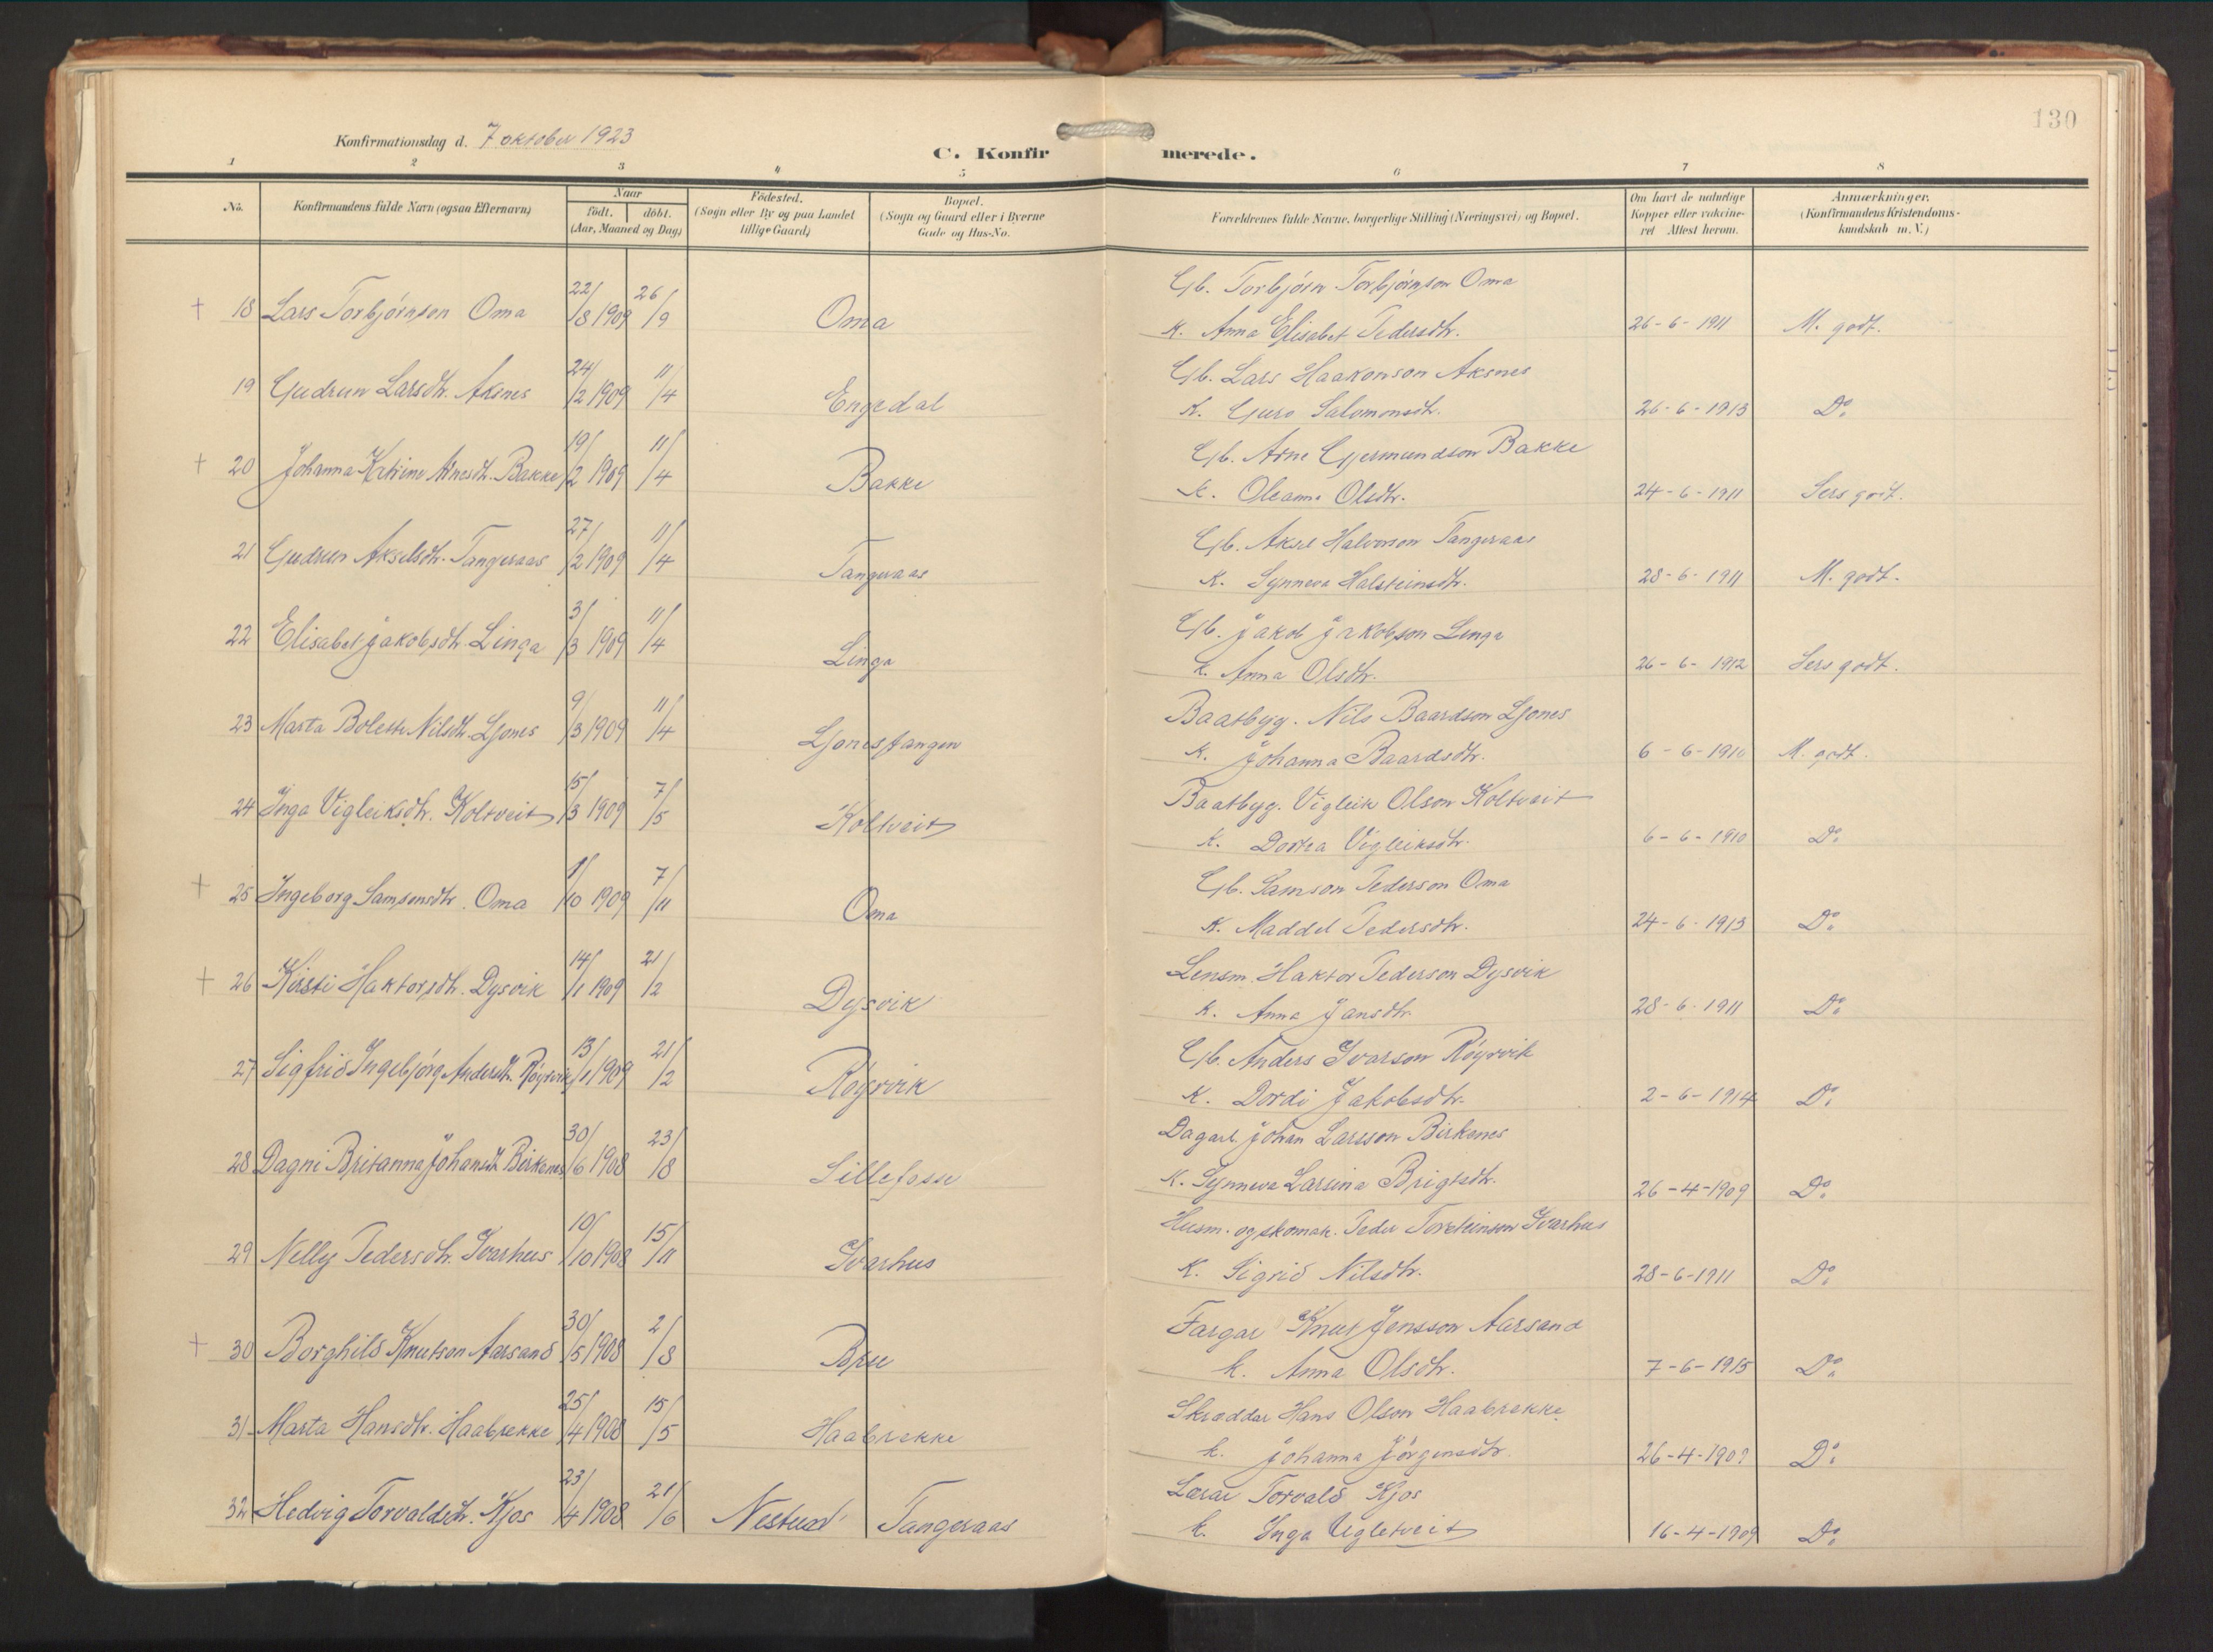 130
Konfirmationsdag d. 7 oktober 1923
C. Konfirmerede.
1 2 3 4 5 6 7 8
No. Konfirmandens fulde Navn (ogsaa Efternavn) Naar födt. döbt. (Aar, Maaned og Dag) Födested. (Sogn eller By og paa Landet tillige Gaard) Bopæl. (Sogn og Gaard eller i Byerne Gade og Hus-No. Forældrenes fulde Navne, borgerlige Stilling (Næringsvei) og Bopæl. Om havt de naturlige Kopper eller vaccineret Attest herom. Anmærkninger. (Konfirmandens Kristendomskundskab m. V.)
Gb. Torbjörn Torbjörnson Oma
+ 18 Lars Torbjörnson Oma 22/8 1909 26/9 Oma K. Anna Elisabet Pedersdtr. 26-6-1911 M. godt.
Gb. Lars Haakonson Aksnes
19 Gudrun Larsdtr. Aksnes 24/2 1909 11/4 Engedal K. Guro Salomonsdtr. 26-6-1913 Do
Gb. Arne Gjermundson Bakke
+ 20 Johanna Katrine Arnesdtr. Bakke 19/2 1909 11/4 Bakke K. Oleanna Olsdtr. 24-6-1911 Sers godt.
Gb. Aksel Halvorson Tangeraas
21 Gudrun Akselsdtr. Tangeraas 27/2 1909 11/4 Tangeraas K. Synneva Halsteinsdtr. 28-6-1911 M. godt.
Gb. Jakob Jakobson Linga
22 Elisabet Jakobsdtr. Linga 3/3 1909 11/4 Linga K. Anna Olsdtr. 26-6-1912 Sers godt.
Baatbyg. Nils Baardson Ljones
23 Marta Bolette Nilsdtr. Ljones 9/3 1909 11/4 Ljonestangen K. Johanna Baardsdtr. 6-6-1910 M. godt.
Baatbyg. Vigleik Olson Koltveit
24 Inga Vigleiksdtr. Koltveit 15/3 1909 7/5 Koltveit K. Dortea Vigleiksdtr. 6-6-1910 Do
Gb. Samson Pederson Oma
+ 25 Ingeborg Samsonsdtr. Oma 1/10 1909 7/11 Oma K. Maddel Pedersdtr. 24-6-1913 Do
Lensm. Haktor Pederson Dysvik
+ 26 Kirsti Haktorsdtr. Dysvik 14/1 1909 21/2 Dysvik K. Anna Jansdtr. 28-6-1911 Do
Gb. Anders Ivarson Röyrvik
27 Sigfrid Ingebjörg Andersdtr. Röyrvik 13/1 1909 21/2 Röyrvik K. Dordi Jakobsdtr. 2-6-1914 Do
Dagarb. Johan Larsson Birkenes
28 Dagni Britanna Johansdtr. Birkenes 30/6 1908 23/8 Lillefosse K. Synneva Larsina Brigtsdtr. 26-4-1909 Do
Husm. og skomak. Peder Torsteinson Ivarhus
29 Nelly Pedersdtr. Ivarhus 10/10 1908 15/11 Ivarhus K. Sigrid Nilsdtr. 28-6-1911 Do
Fargar Knut Jensson Aarsand
+ 30 Borghild Knutson Aarsand 30/5 1908 2/8 Bru K. Anna Olsdtr. 7-6-1915 Do
Skræddar Hans Olson Haabrekke
31 Marta Hansdtr. Haabrekke 25/4 1908 15/5 Haabrekke K. Johanna Jörgensdtr. 26-4-1909 Do
Lærar Torvald Kjos
32 Hedvig Torvaldsdtr. Kjos 23/4 1908 21/6 Tangeraas K. Inga Vigletveit 16-4-1909 Do